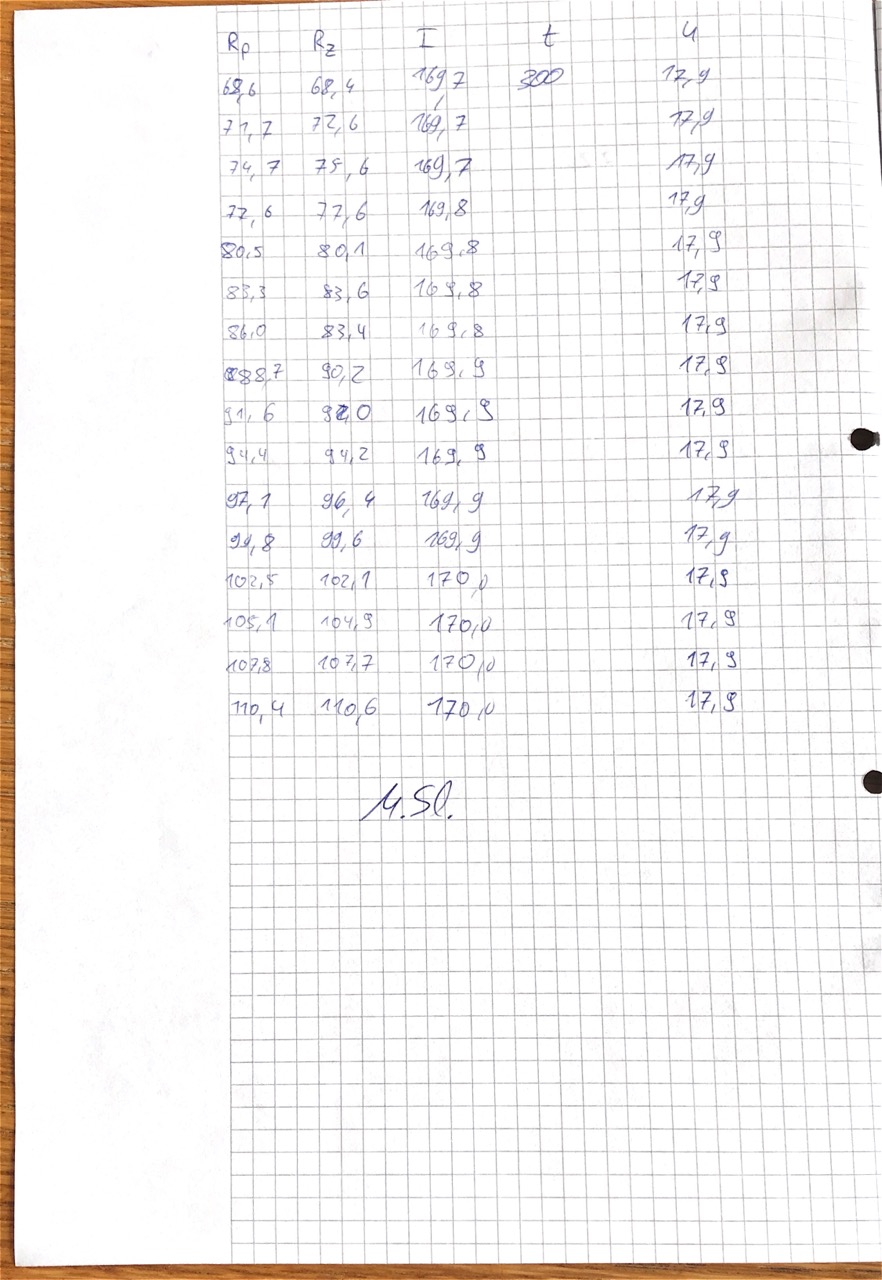 Rp Rz I t U
68,6 68,4 169,7 300 17,9
71,7 72,6 169,7 17,9
74,7 75,6 169,7 17,9
77,6 77,6 169,8 17,9
80,5 80,1 169,8 17,9
83,3 83,6 169,8 17,9
86,0 83,4 169,8 17,9
88,7 90,2 169,9 17,9
91,6 92,0 169,9 17,9
94,4 94,2 169,9 17,9
97,1 96,4 169,9 17,9
99,8 99,6 169,9 17,9
102,5 102,1 170,0 17,9
105,1 104,9 170,0 17,9
107,8 107,7 170,0 17,9
110,4 110,6 170,0 17,9
M.Sl.